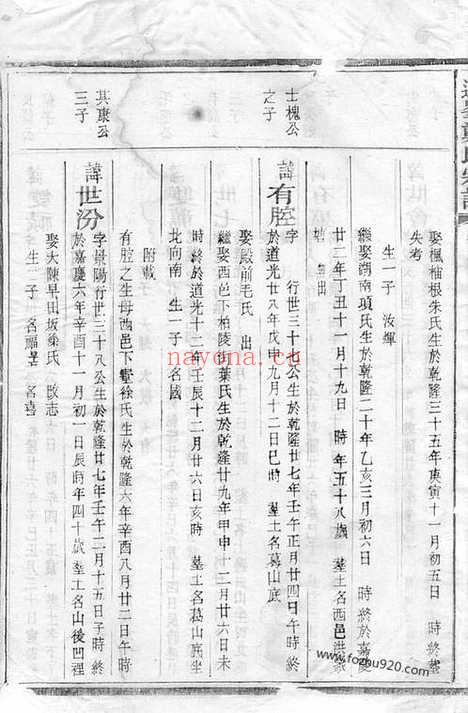 娶楓柚根朱氏生於乾隆三十五年庚寅十一月初五日 時終墓
失考
生一子 汝煇
繼娶湖南項氏生於乾隆二十年乙亥三月初六日 時終於嘉慶
廿二年丁丑十一月十九日 時年五十八歲 墓土名西邑洪
出
士槐公
之子
諱有腔
字 行世三十 公生於乾隆廿七年壬午正月廿四日午時終
於道光廿八年戊申九月十二日巳時 墓土名葛山底
娶殿前毛氏 出
繼娶西邑下柏陵街葉氏生於乾隆廿九年甲申十二月廿六日未
時終於道光十二年壬辰十二月廿六日亥時 墓土名葛山底坐
北向南 生一子 名國
附載
有腔之生母西邑下 徐氏生於乾隆六年辛酉八月廿二日午時
其康公
三子
諱世汾
字景陽行世三十八公生於乾隆廿七年壬午二月十五日子時終
於嘉慶六年辛酉十一月初一日辰時年四十歲 墓土名山後凹裡
娶大陳早田坂梁氏 改志
生二子 名福 名喜
www.na.co.kr
www.fozhu920.com